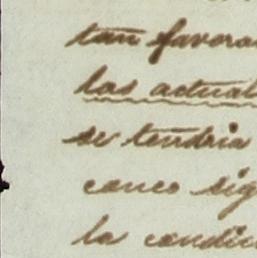 tan favora
las actual
se tendria
conco sig
la condic